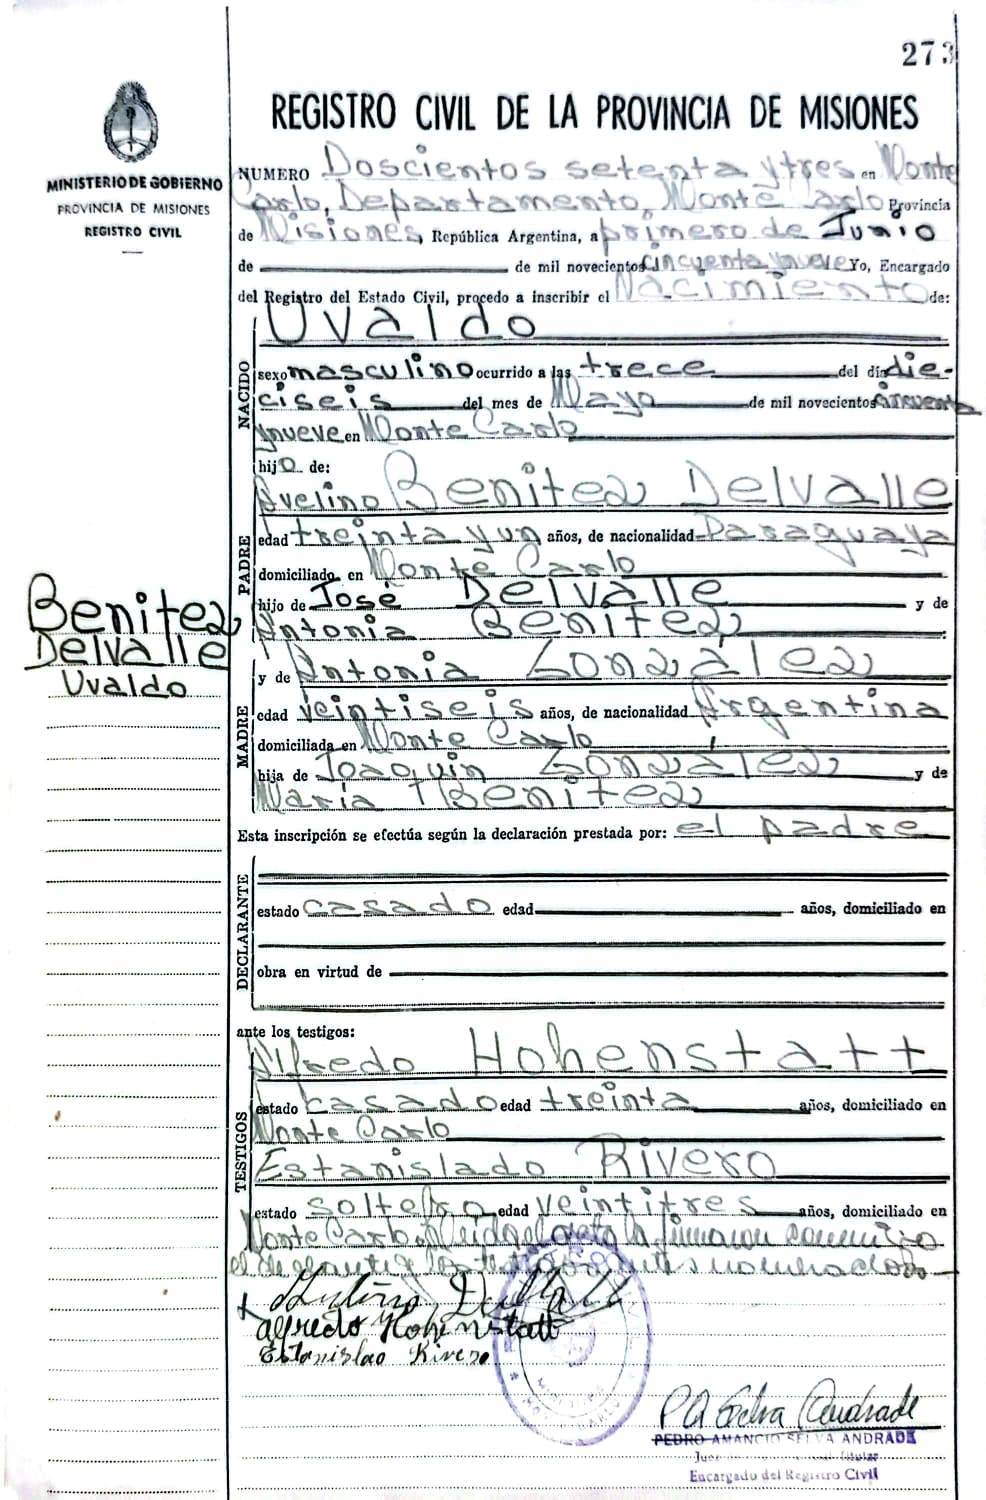 273
REGISTRO CIVIL DE LA PROVINCIA DE MISIONES
MINISTERIO DE GOBIERNO
PROVINCIA DE MISIONES
REGISTRO CIVIL
NUMERO Doscientos setenta y tres en Monte
Carlo, Departamento, Monte Carlo Provincia
de Misiones, República Argentina, a primero de Junio
de de mil novecientos cincuenta ynueve Yo, Encargado
del Registro del Estado Civil, procedo a inscribir el Nacimiento de:
Uvaldo
NACIDO
sexo masculino ocurrido a las trece del día die-
ciseis del mes de Mayo de mil novecientos cincuenta
ynueve en Monte Carlo
hijo de:
Avelino Benitez Delvalle
PADRE
edad treinta y un años, de nacionalidad Paraguaya
domiciliado en Monte Carlo
hijo de José Delvalle y de
Antonia Benitez
Benitez
Delvalle
Uvaldo
y de Antonia González
MADRE
edad veintiseis años, de nacionalidad Argentina
domiciliada en Monte Carlo
hija de Joaquin González y de
María Benitez
Esta inscripción se efectúa según la declaración prestada por: el padre
DECLARANTE
estado casado edad años, domiciliado en
obra en virtud de
ante los testigos:
TESTIGOS
Alfredo Hohenstatt
estado casado edad treinta años, domiciliado en
Monte Carlo
Estanislado Rivero
estado soltero edad veintitres años, domiciliado en
Monte Carlo. Leida el acta la firmaron conmigo
el declarante y los testigos antes nombrados
Delvalle
alfredo Hohenstatt
Estanislao Rivero
P A Selva Andrade
PEDRO AMANCIO SELVA ANDRADE
Juez Titular
Encargado del Registro Civil